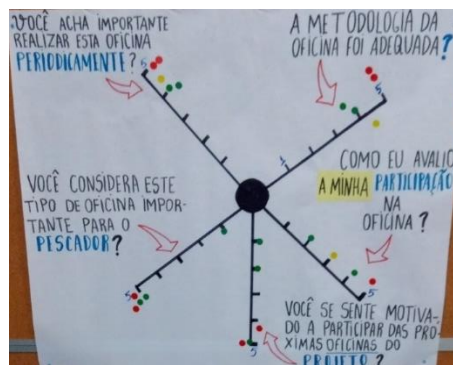 VOCÊ ACHA IMPORTANTE
REALIZAR ESTA OFICINA
PERIODICAMENTE?
5
A METODOLOGIA DA
OFICINA FOI ADEQUADA?
5
1
COMO EU AVALIO
A MINHA PARTICIPAÇÃO
NA
OFICINA?
5
VOCÊ CONSIDERA ESTE
TIPO DE OFICINA IMPOR-
TANTE PARA O
PESCADOR?
5
VOCÊ SE SENTE MOTIVA-
DO A PARTICIPAR DAS PRÓ-
XIMAS OFICINAS DO
PROJETO?
5